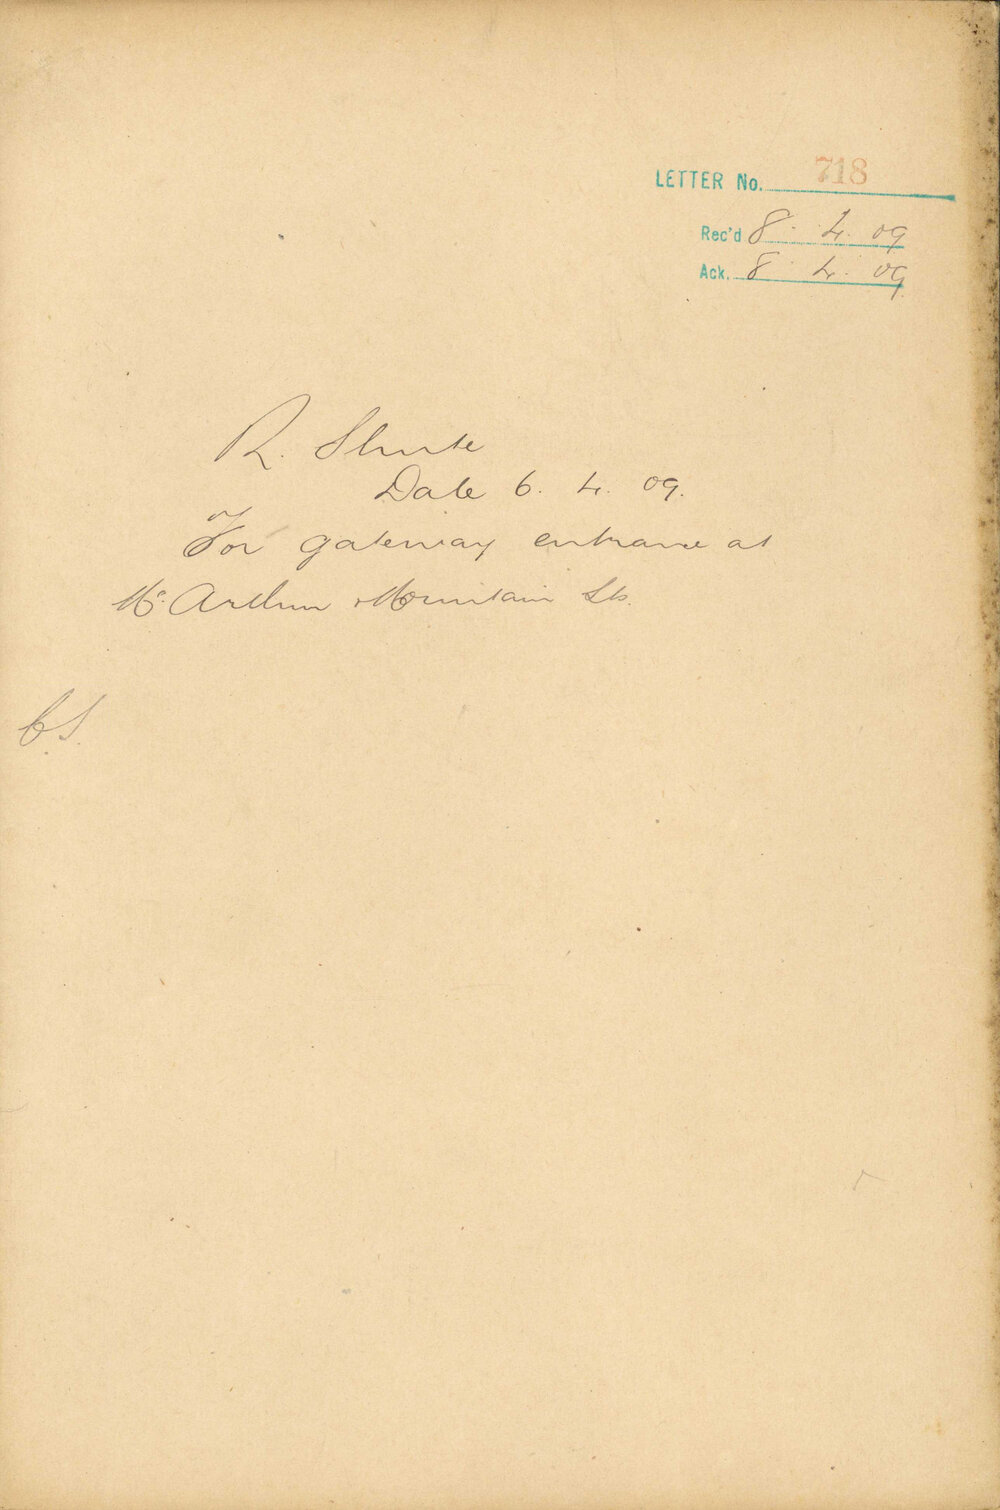 LETTER No. 718
Rec'd 8. 4. 09
Ack. 8. 4. 09.
R. Shute
Date 6. 4. 09.
For gateway entrance at
Mc Arthur Mountain Sts.